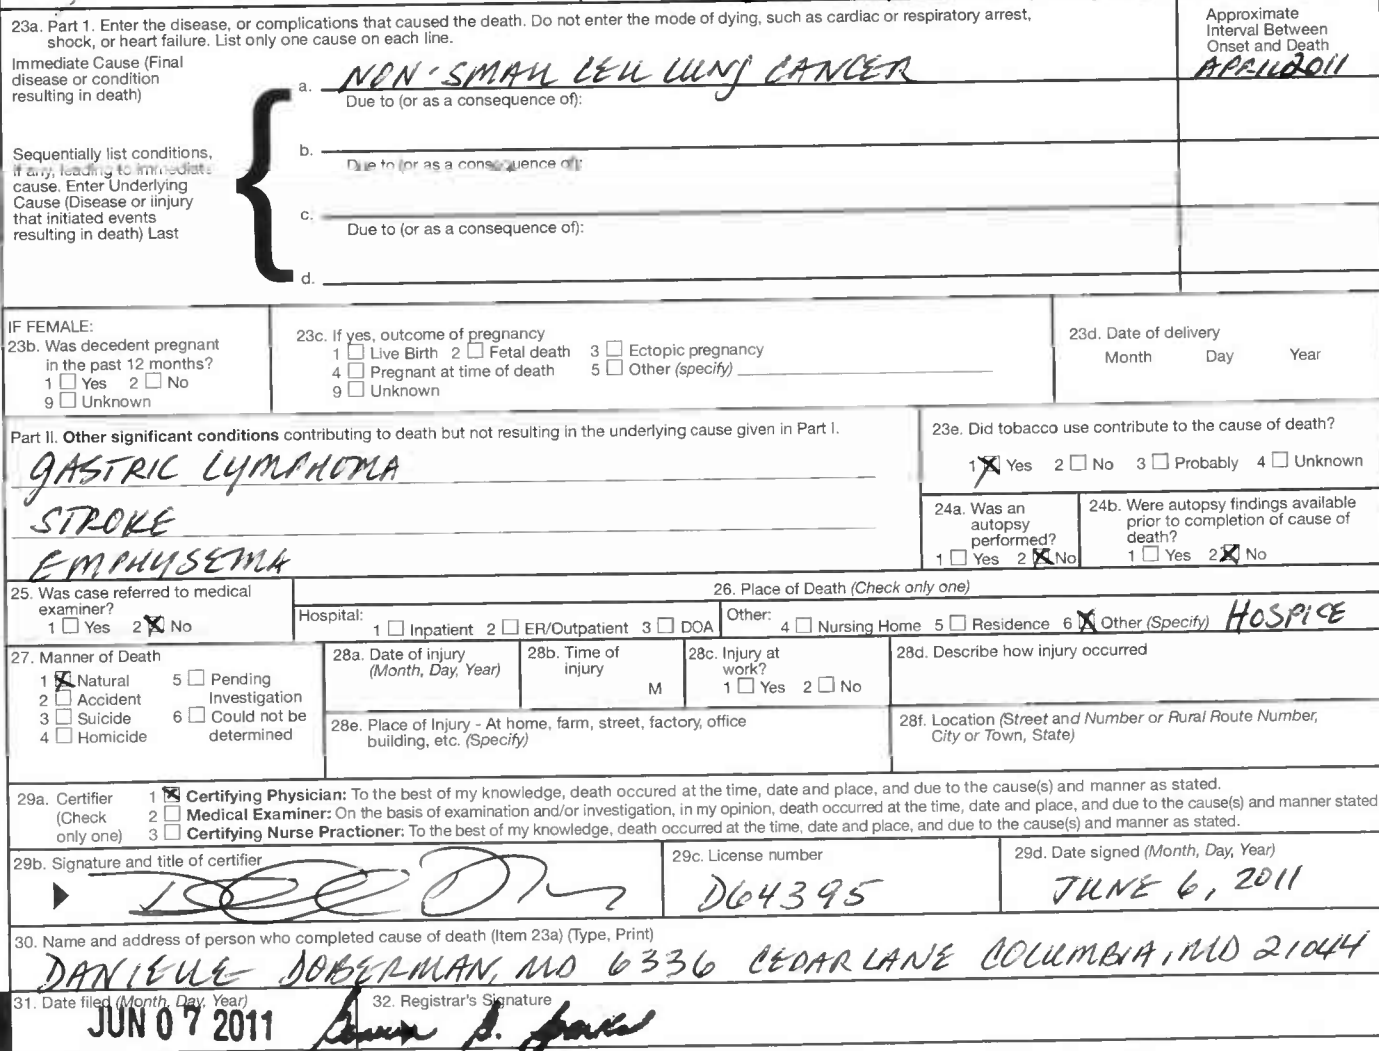 23a. Part 1. Enter the disease, or complications that caused the death. Do not enter the mode of dying, such as cardiac or respiratory arrest,
shock, or heart failure. List only one cause on each line.
Approximate
Interval Between
Onset and Death
Immediate Cause (Final
disease or condition
resulting in death)
a. NON-SMALL CELL LUNG CANCER
APRIL 2011
Due to (or as a consequence of):
Sequentially list conditions,
if any, leading to immediate
cause. Enter Underlying
Cause (Disease or iinjury
that initiated events
resulting in death) Last
b.
Due to (or as a consequence of):
c.
Due to (or as a consequence of):
d.
IF FEMALE:
23b. Was decedent pregnant
in the past 12 months?
1 ☐ Yes 2 ☐ No
9 ☐ Unknown
23c. If yes, outcome of pregnancy
1 ☐ Live Birth 2 ☐ Fetal death 3 ☐ Ectopic pregnancy
4 ☐ Pregnant at time of death 5 ☐ Other (specify)
9 ☐ Unknown
23d. Date of delivery
Month Day Year
Part II. Other significant conditions contributing to death but not resulting in the underlying cause given in Part I.
GASTRIC LYMPHOMA
STROKE
EMPHYSEMA
23e. Did tobacco use contribute to the cause of death?
1 ☒ Yes 2 ☐ No 3 ☐ Probably 4 ☐ Unknown
24a. Was an
autopsy
performed?
1 ☐ Yes 2 ☒ No
24b. Were autopsy findings available
prior to completion of cause of
death?
1 ☐ Yes 2 ☒ No
25. Was case referred to medical
examiner?
1 ☐ Yes 2 ☒ No
26. Place of Death (Check only one)
Hospital: 1 ☐ Inpatient 2 ☐ ER/Outpatient 3 ☐ DOA
Other: 4 ☐ Nursing Home 5 ☐ Residence 6 ☒ Other (Specify) HOSPICE
27. Manner of Death
1 ☒ Natural 5 ☐ Pending
2 ☐ Accident Investigation
3 ☐ Suicide 6 ☐ Could not be
4 ☐ Homicide determined
28a. Date of injury
(Month, Day, Year)
28b. Time of
injury
M
28c. Injury at
work?
1 ☐ Yes 2 ☐ No
28d. Describe how injury occurred
28e. Place of Injury - At home, farm, street, factory, office
building, etc. (Specify)
28f. Location (Street and Number or Rural Route Number,
City or Town, State)
29a. Certifier
(Check
only one)
1 ☒ Certifying Physician: To the best of my knowledge, death occured at the time, date and place, and due to the cause(s) and manner as stated.
2 ☐ Medical Examiner: On the basis of examination and/or investigation, in my opinion, death occurred at the time, date and place, and due to the cause(s) and manner stated
3 ☐ Certifying Nurse Practioner: To the best of my knowledge, death occurred at the time, date and place, and due to the cause(s) and manner as stated.
29b. Signature and title of certifier
29c. License number
D64395
29d. Date signed (Month, Day, Year)
JUNE 6, 2011
30. Name and address of person who completed cause of death (Item 23a) (Type, Print)
DANIELLE DOBERMAN, MD 6336 CEDAR LANE COLUMBIA, MD 21044
31. Date filed (Month, Day, Year)
JUN 07 2011
32. Registrar's Signature